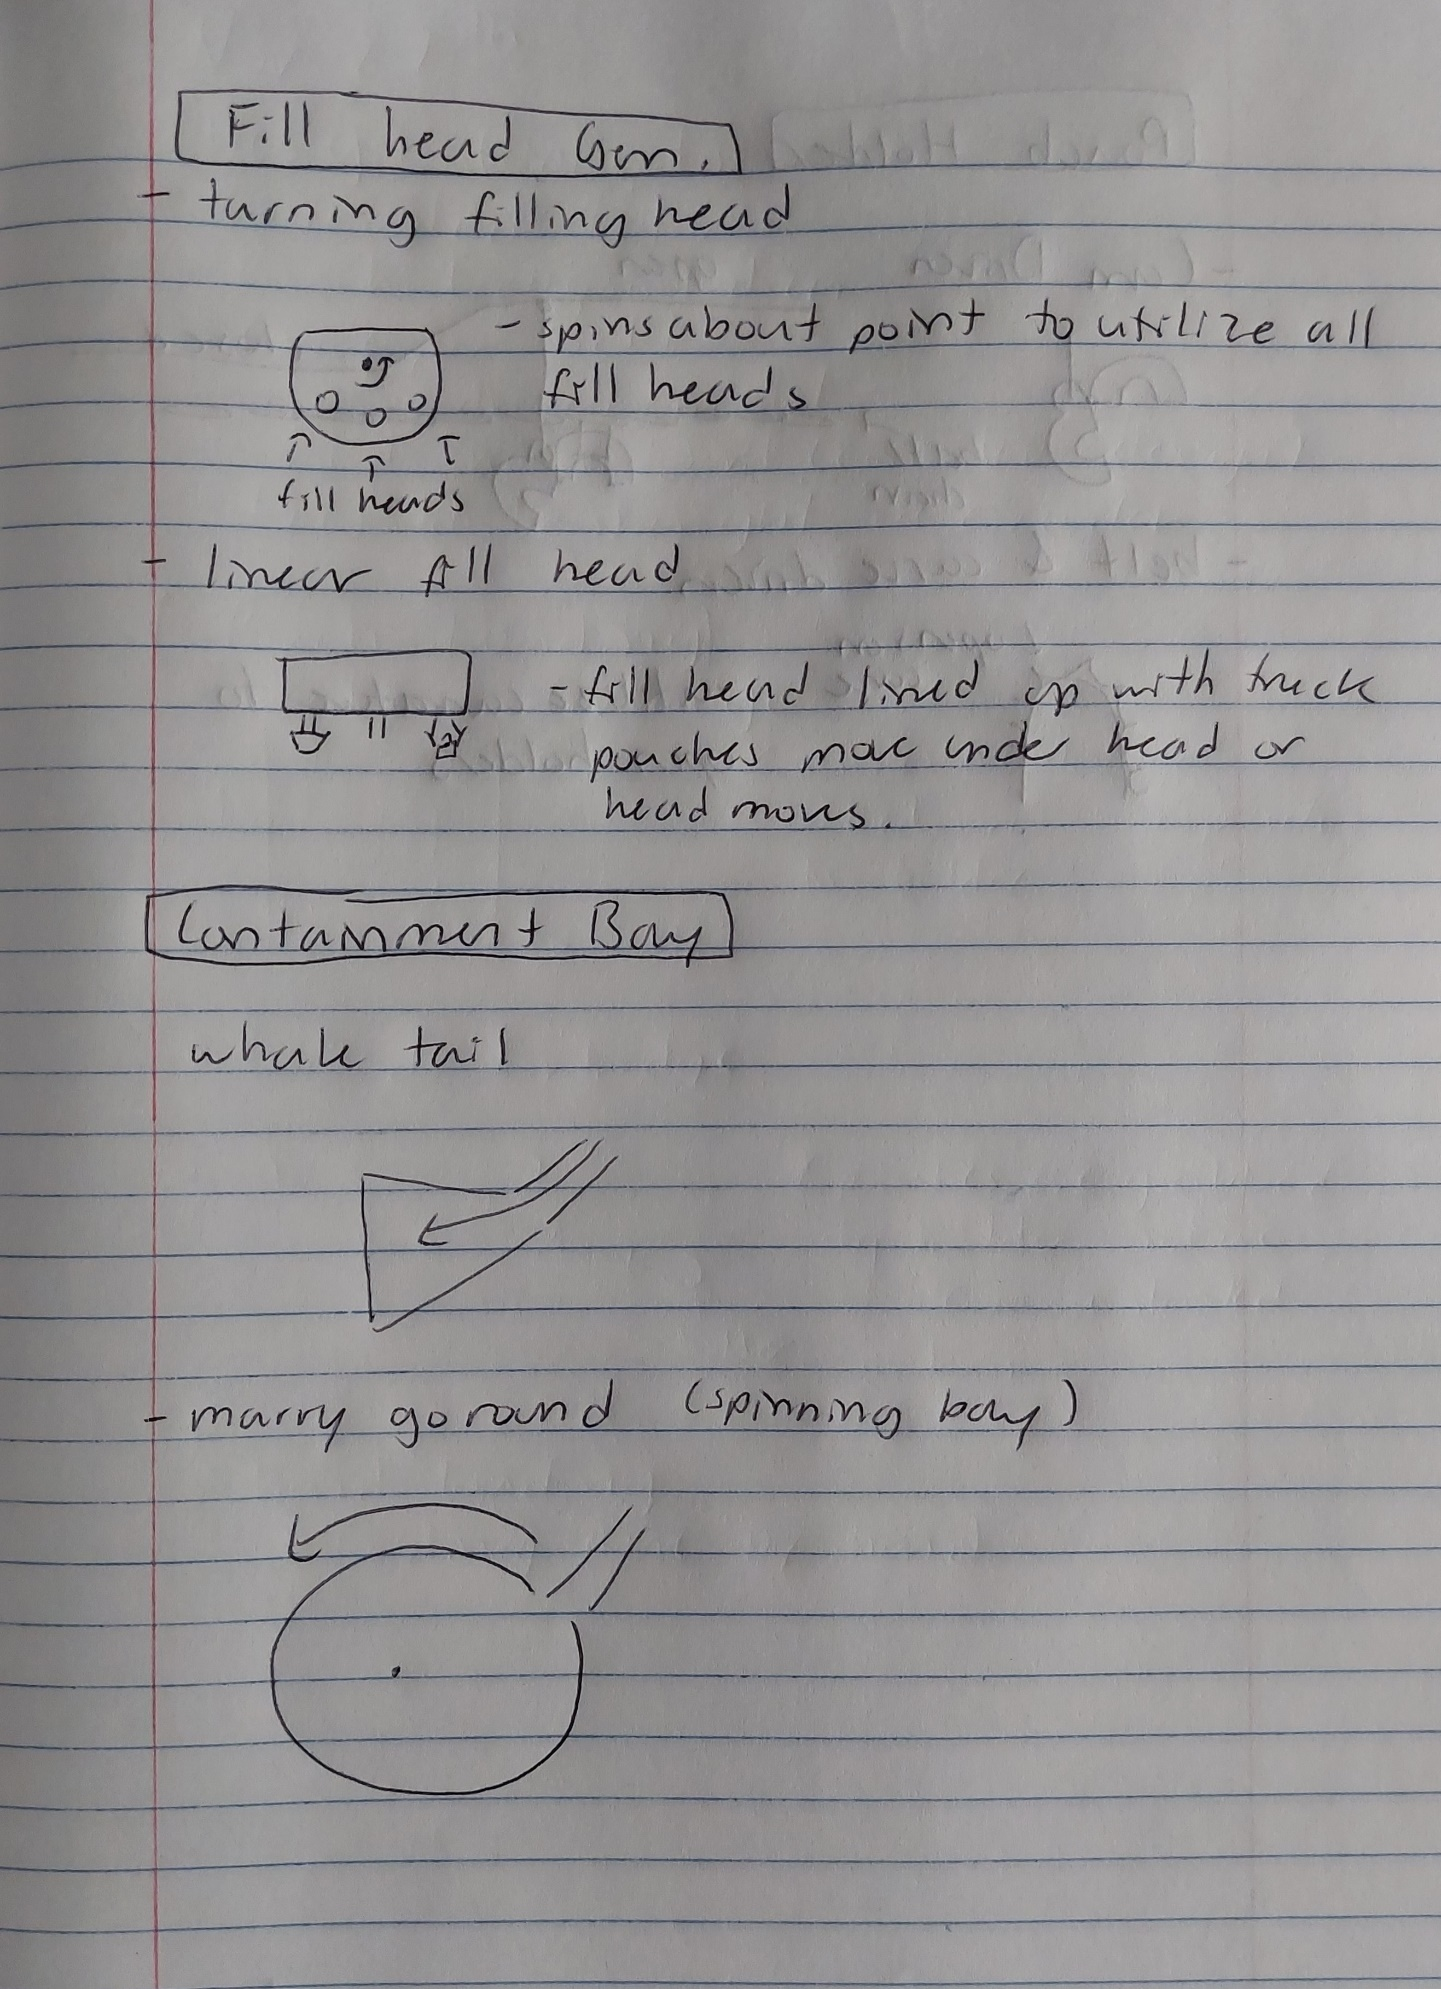 Fill head Gen.
- turning filling head
- spins about point to utilize all
fill heads
fill heads
- linear fill head
- fill head lined up with track
pouches move under head or
head moves.
Containment Bay
whale tail
- marry go round (spinning bay)